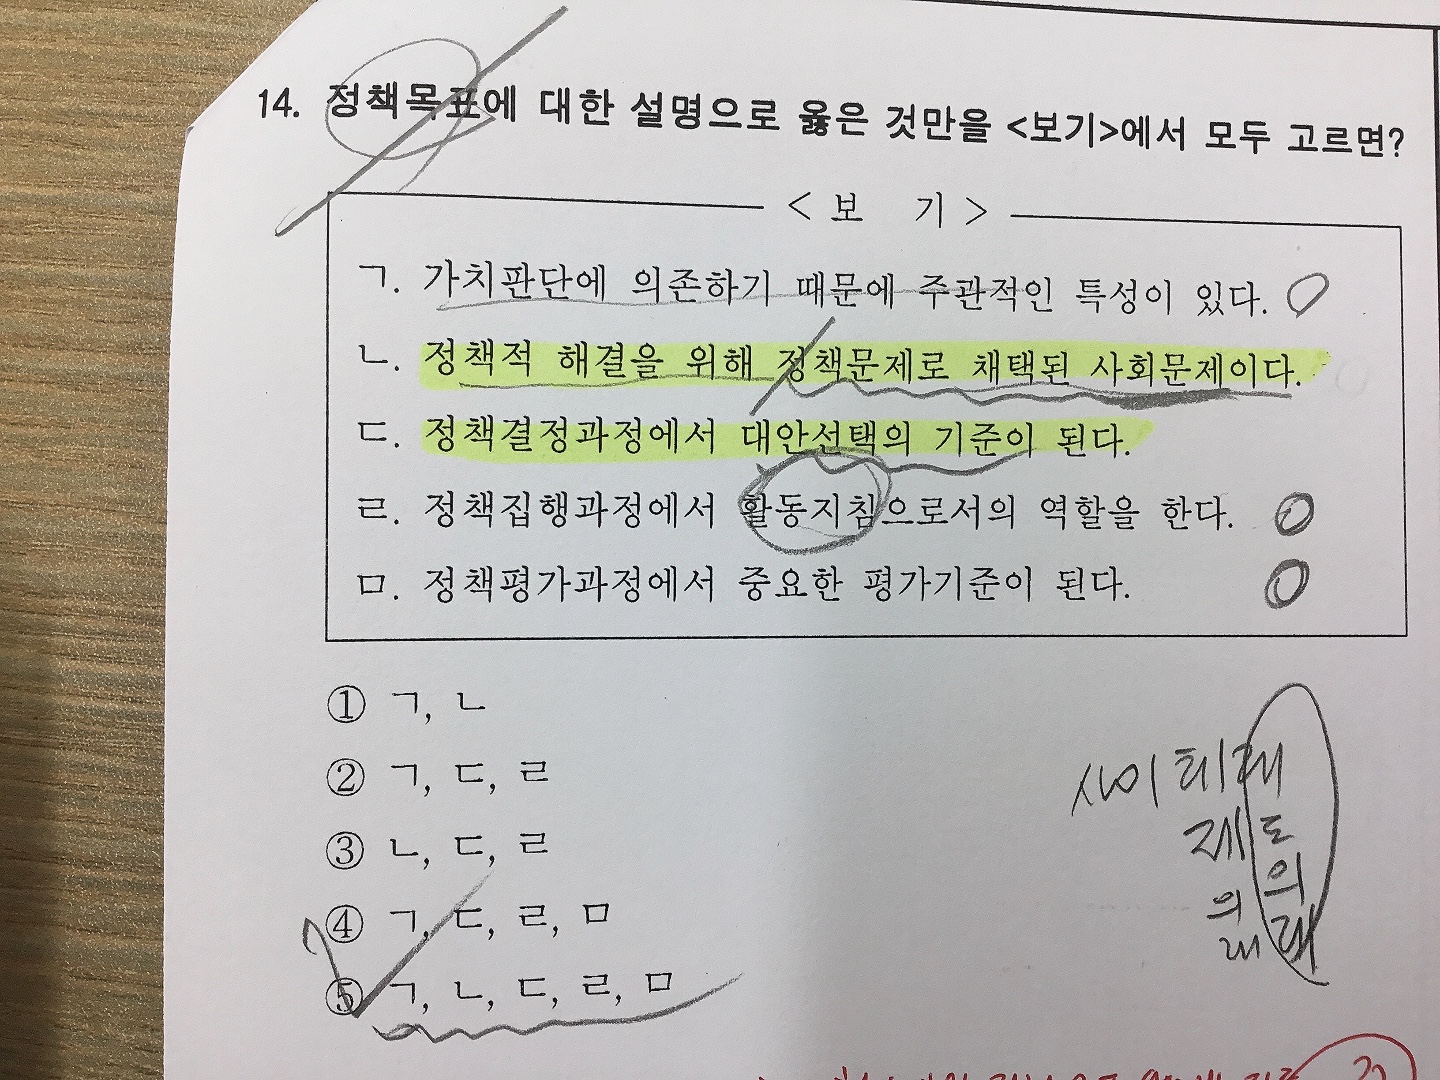 14. 정책목표에 대한 설명으로 옳은 것만을 <보기>에서 모두 고르면?
< 보 기 >
ㄱ. 가치판단에 의존하기 때문에 주관적인 특성이 있다.
ㄴ. 정책적 해결을 위해 정책문제로 채택된 사회문제이다.
ㄷ. 정책결정과정에서 대안선택의 기준이 된다.
ㄹ. 정책집행과정에서 활동지침으로서의 역할을 한다.
ㅁ. 정책평가과정에서 중요한 평가기준이 된다.
① ㄱ, ㄴ
② ㄱ, ㄷ, ㄹ
③ ㄴ, ㄷ, ㄹ
④ ㄱ, ㄷ, ㄹ, ㅁ
⑤ ㄱ, ㄴ, ㄷ, ㄹ, ㅁ
제 도
의 의